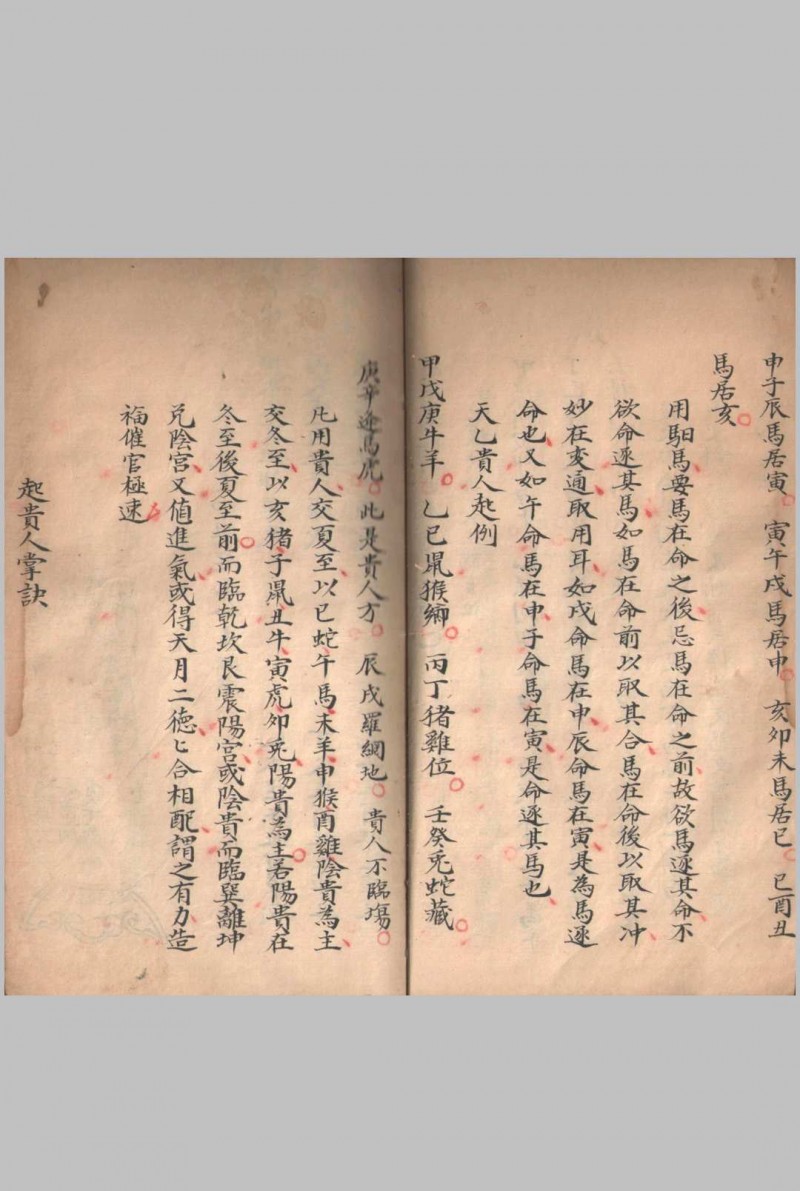 申子辰馬居寅。寅午戌馬居申。亥夘未馬居巳。巳酉丑
馬居亥。
用馹馬、要馬在命之後、忌馬在命之前、故欲馬逐其命、不
欲命逐其馬、如馬在命前以取其合、馬在命後以取其冲、
妙在变通、取用耳、如戌命馬在申、辰命馬在寅、是為馬逐
命也、又如午命馬在申、子命馬在寅、是命逐其馬也、
天乙貴人起例
甲戊庚牛羊。乙己鼡猴鄉。丙丁猪雞位。壬癸兎蛇藏。
庚辛逢馬虎。此是貴人方。辰戌羅網地。貴人不臨塲。
凡用貴人、交夏至、以巳蛇午馬未羊申猴酉雞陰貴為主、
交冬至、以亥猪子鼡丑牛寅虎夘兎陽貴為主。若陽貴在
冬至後夏至前。而臨乾坎艮震陽宮、或陰貴而臨巽離坤
兌陰宮、又值進氣、或得天月二德、匕合相配、謂之有力、造
福催官極速
起貴人掌訣